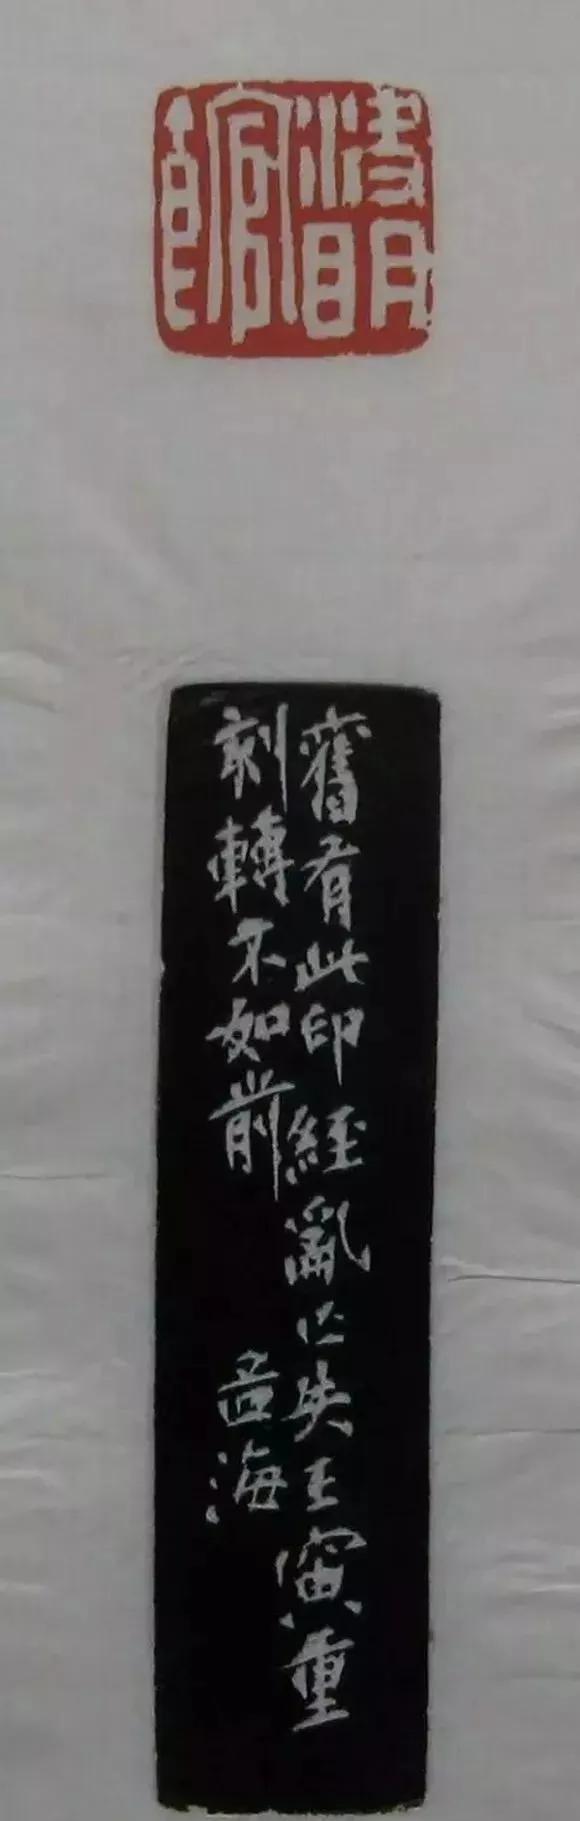 舊有此印經亂亡失壬寅重
刻轉不如前
孟海